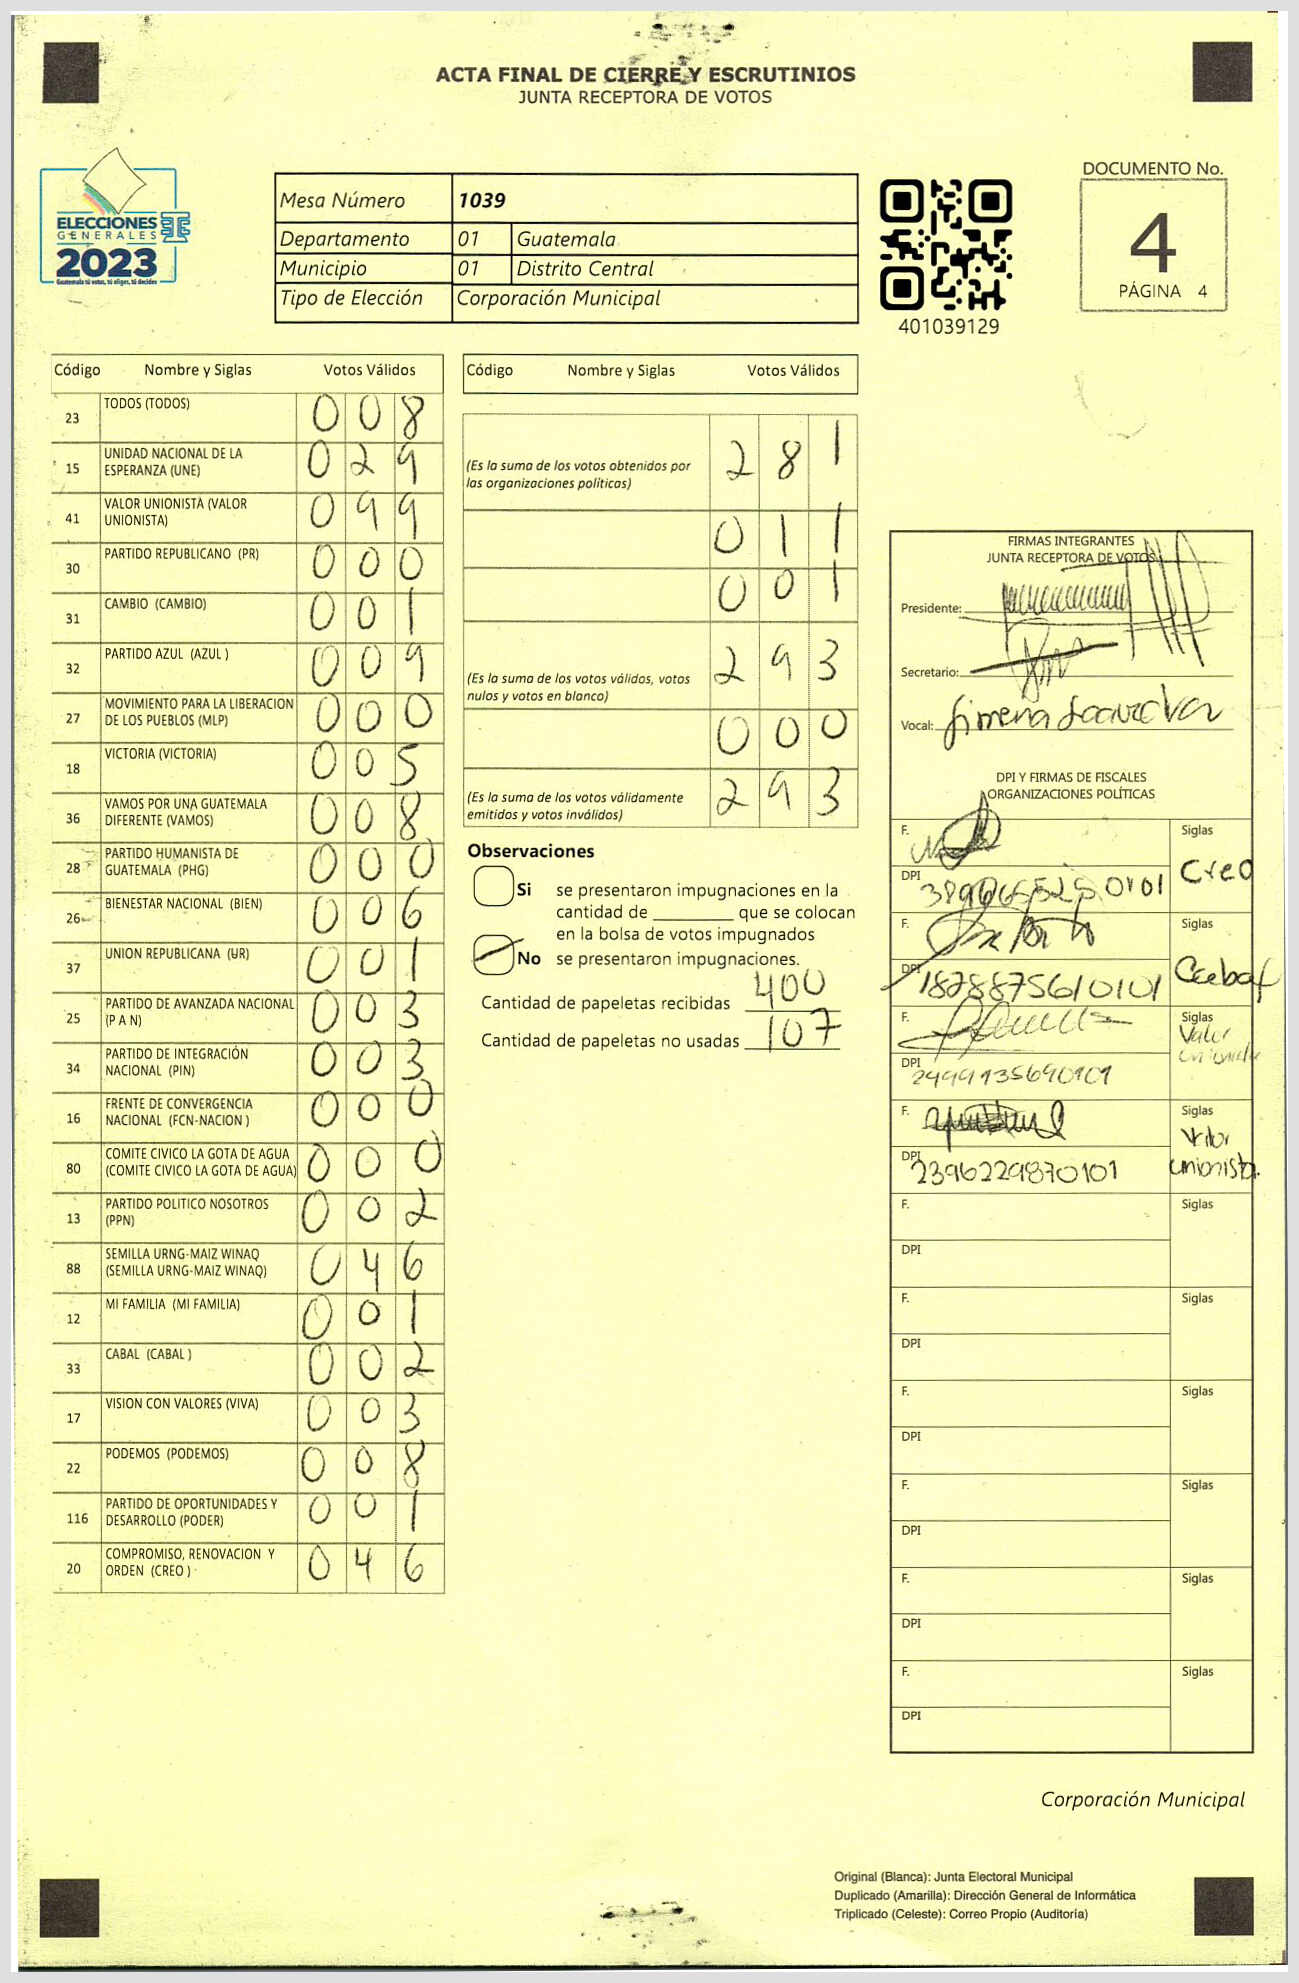 ACTA FINAL DE CIERRE Y ESCRUTINIOS
JUNTA RECEPTORA DE VOTOS
ELECCIONES
GENERALES
2023
Guatemala tú votas, tú eliges, tú decides
Mesa Número 1039
Departamento 01 Guatemala
Municipio 01 Distrito Central
Tipo de Elección Corporación Municipal
401039129
DOCUMENTO No.
4
PÁGINA 4
Código Nombre y Siglas Votos Válidos
23 TODOS (TODOS) 0 0 8
15 UNIDAD NACIONAL DE LA
ESPERANZA (UNE) 0 2 9
41 VALOR UNIONISTA (VALOR
UNIONISTA) 0 9 9
30 PARTIDO REPUBLICANO (PR) 0 0 0
31 CAMBIO (CAMBIO) 0 0 1
32 PARTIDO AZUL (AZUL ) 0 0 9
27 MOVIMIENTO PARA LA LIBERACION
DE LOS PUEBLOS (MLP) 0 0 0
18 VICTORIA (VICTORIA) 0 0 5
36 VAMOS POR UNA GUATEMALA
DIFERENTE (VAMOS) 0 0 8
28 PARTIDO HUMANISTA DE
GUATEMALA (PHG) 0 0 0
26 BIENESTAR NACIONAL (BIEN) 0 0 6
37 UNION REPUBLICANA (UR) 0 0 1
25 PARTIDO DE AVANZADA NACIONAL
(P A N) 0 0 3
34 PARTIDO DE INTEGRACIÓN
NACIONAL (PIN) 0 0 3
16 FRENTE DE CONVERGENCIA
NACIONAL (FCN-NACION ) 0 0 0
80 COMITE CIVICO LA GOTA DE AGUA
(COMITE CIVICO LA GOTA DE AGUA) 0 0 0
13 PARTIDO POLITICO NOSOTROS
(PPN) 0 0 2
88 SEMILLA URNG-MAIZ WINAQ
(SEMILLA URNG-MAIZ WINAQ) 0 4 6
12 MI FAMILIA (MI FAMILIA) 0 0 1
33 CABAL (CABAL ) 0 0 2
17 VISION CON VALORES (VIVA) 0 0 3
22 PODEMOS (PODEMOS) 0 0 8
116 PARTIDO DE OPORTUNIDADES Y
DESARROLLO (PODER) 0 0 1
20 COMPROMISO, RENOVACION Y
ORDEN (CREO ) 0 4 6
Código Nombre y Siglas Votos Válidos
(Es la suma de los votos obtenidos por
las organizaciones políticas) 2 8 1
0 1 1
0 0 1
(Es la suma de los votos válidos, votos
nulos y votos en blanco) 2 9 3
0 0 0
(Es la suma de los votos válidamente
emitidos y votos inválidos) 2 9 3
Observaciones
Si se presentaron impugnaciones en la
cantidad de ________ que se colocan
en la bolsa de votos impugnados
No se presentaron impugnaciones.
Cantidad de papeletas recibidas 400
Cantidad de papeletas no usadas 107
FIRMAS INTEGRANTES
JUNTA RECEPTORA DE VOTOS
Presidente:
Secretario:
Vocal: Jimena
DPI Y FIRMAS DE FISCALES
ORGANIZACIONES POLÍTICAS
F. Siglas
DPI Creo
F. Siglas
DPI 1828875610101
F. Siglas
Valor
DPI 2499135690101
F. Siglas
Valor
DPI 2396229870101 unionista.
F. Siglas
DPI
F. Siglas
DPI
F. Siglas
DPI
F. Siglas
DPI
F. Siglas
DPI
F. Siglas
DPI
Corporación Municipal
Original (Blanca): Junta Electoral Municipal
Duplicado (Amarilla): Dirección General de Informática
Triplicado (Celeste): Correo Propio (Auditoría)